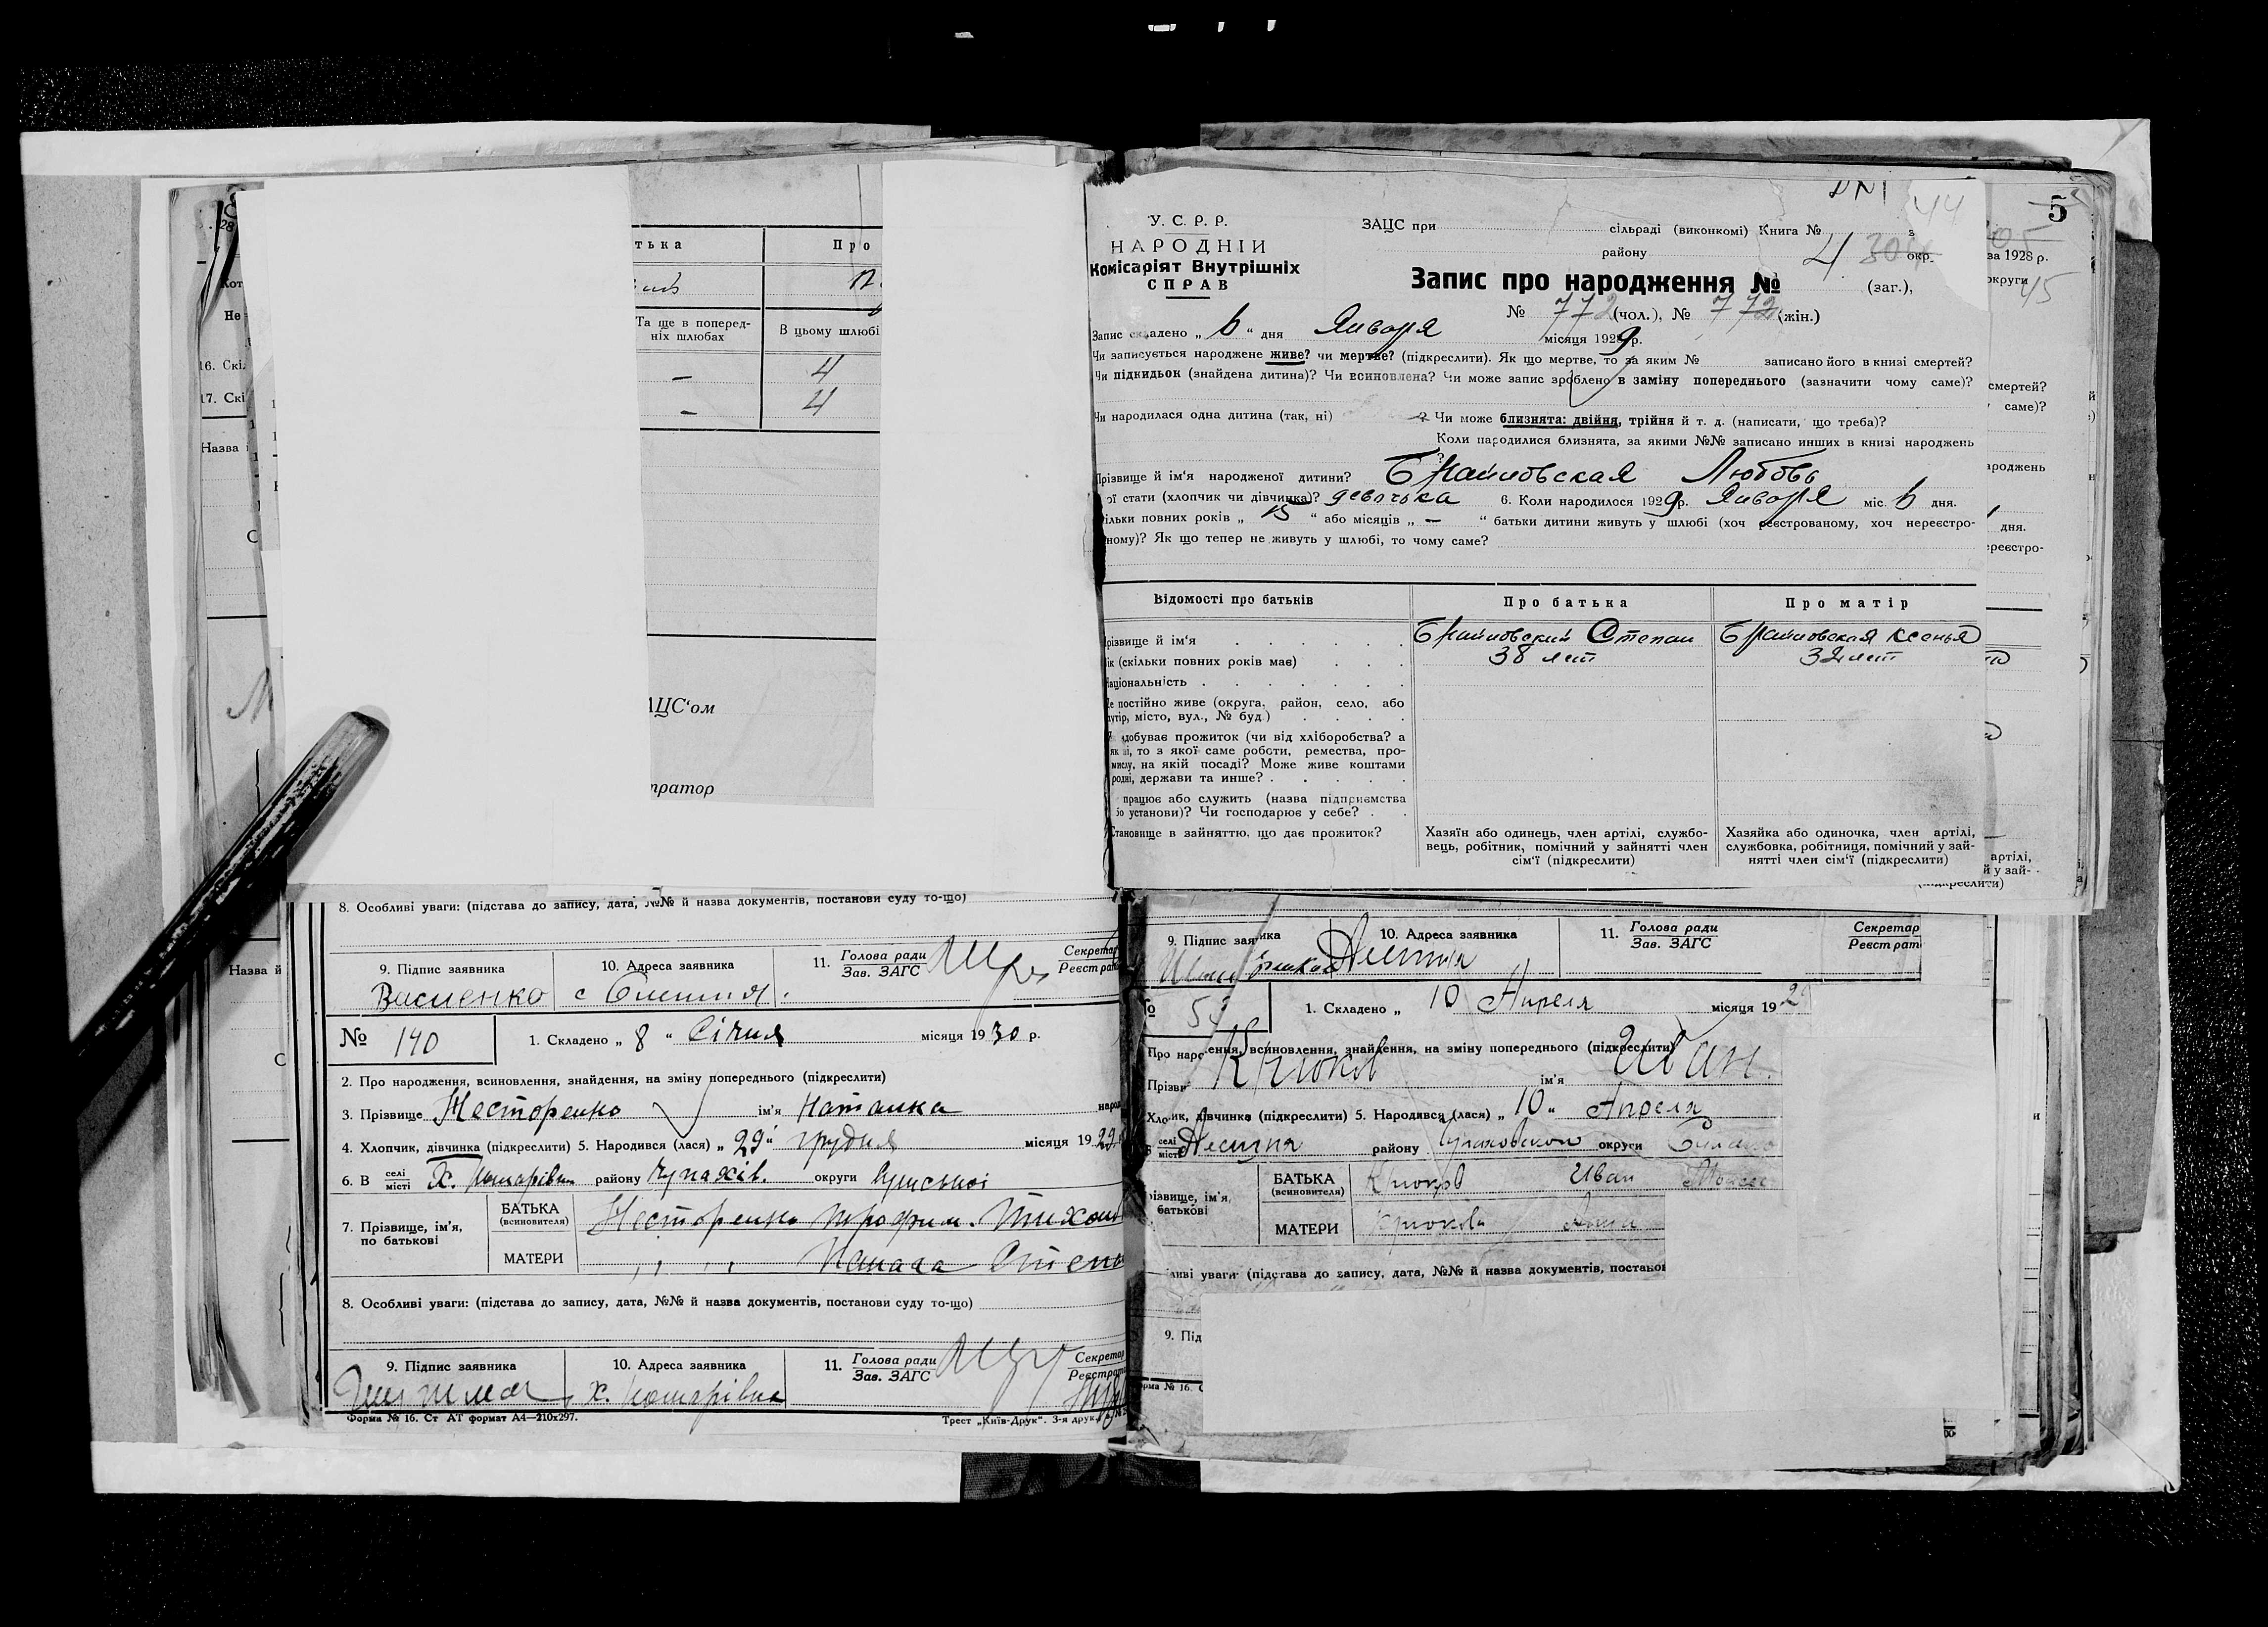 тька
Про
Та ще в поперед-
ніх шлюбах
В цьому шлюбі
– 4
– 4
16. Скі
17. Скі
Назва
АЦС'ом
тратор
Назва й
8. Особливі уваги: (підстава до запису, дата, №№ й назва документів, постанови суду то-що)
9. Підпис заявника
10. Адреса заявника
11. Голова ради
Зав. ЗАГС
Секретар
Реєстрат
Василенко с
№ 140
1. Складено „ 8 “ Січня місяця 1930 р.
2. Про народження, всиновлення, знайдення, на зміну попереднього (підкреслити)
3. Прізвище Несторенко ім'я Наталка народ
4. Хлопчик, дівчинка (підкреслити) 5. Народився (лася) „ 29 “ грудня місяця 1929
6. В селі
місті Х. району Чупахів. округи
7. Прізвище, ім'я,
по батькові
БАТЬКА
(всиновителя)
Несторенко Трофим Тихон
МАТЕРИ
„ „ Степ
8. Особливі уваги: (підстава до запису, дата, №№ й назва документів, постанови суду то-що)
9. Підпис заявника
10. Адреса заявника
11. Голова ради
Зав. ЗАГС
Секретар
Реєстрат
х.
Форма № 16. Ст АТ формат А4—210х297.
Трест „Київ-Друк“. 3-я друк.
5
44
У. С. Р. Р.
НАРОДНІЙ
Комісаріят Внутрішніх
СПРАВ
ЗАЦС при сільраді (виконкомі) Книга № з
району окр.
за 1928 р.
округи
45
4 304
Запис про народження № (заг.),
№ 772 (чол.), № 772 (жін.)
Запис складено „ 6 “ дня Января місяця 1929 р.
Чи записується народжене живе? чи мертве? (підкреслити). Як що мертве, то за яким № записано його в книзі смертей?
Чи підкидьок (знайдена дитина)? Чи всиновлена? Чи може запис зроблено в заміну попереднього (зазначити чому саме)?
Чи народилася одна дитина (так, ні) ? Чи може близнята: двійня, трійня й т. д. (написати, що треба)?
Коли народилися близнята, за якими №№ записано инших в книзі народжень
?
Прізвище й ім'я народженої дитини? Браиловская Любовь
ої стати (хлопчик чи дівчинка)? девочька 6. Коли народилося 1929 р. Января міс. 6 дня.
ільки повних років „ 15 “ або місяців „ – “ батьки дитини живуть у шлюбі (хоч реєстрованому, хоч нереєстро-
ному)? Як що тепер не живуть у шлюбі, то чому саме?
Відомості про батьків
Про батька
Про матір
різвище й ім'я
Браиловский Степан
Браиловская Ксенья
ік (скільки повних років має)
38 лет
32 лет
аціональність
е постійно живе (округа, район, село, або
утір, місто, вул., № буд.)
здобуває прожиток (чи від хліборобства? а
як ні, то з якої саме роботи, ремества, про-
мислу, на якій посаді? Може живе коштами
родні, держави та инше?
працює або служить (назва підприємства
бо установи)? Чи господарює у себе?
Становище в зайняттю, що дає прожиток?
Хазяїн або одинець, член артілі, службо-
вець, робітник, помічний у зайнятті член
сім'ї (підкреслити)
Хазяйка або одиночка, член артілі,
службовка, робітниця, помічний у зай-
нятті член сім'ї (підкреслити)
смертей?
саме)?
ароджень
дня.
ереєстро-
артілі,
й у зай-
9. Підпис заявника
10. Адреса заявника
11. Голова ради
Зав. ЗАГС
Секретар
Реєстрат
1. Складено „ 10 Апреля місяця 1929
Про народження, всиновлення, знайдення, на зміну попереднього (підкреслити)
Прізви Крюков ім'я Иван
Хлопчик, дівчинка (підкреслити) 5. Народився (лася) „ 10 “ Апреля
селі
місті району округи
різвище, ім'я,
батькові
БАТЬКА
(всиновителя)
Крюков Иван
МАТЕРИ
Крюкова Анна
ливі уваги: (підстава до запису, дата, №№ й назва документів, постанов
9. Під
рма № 16.